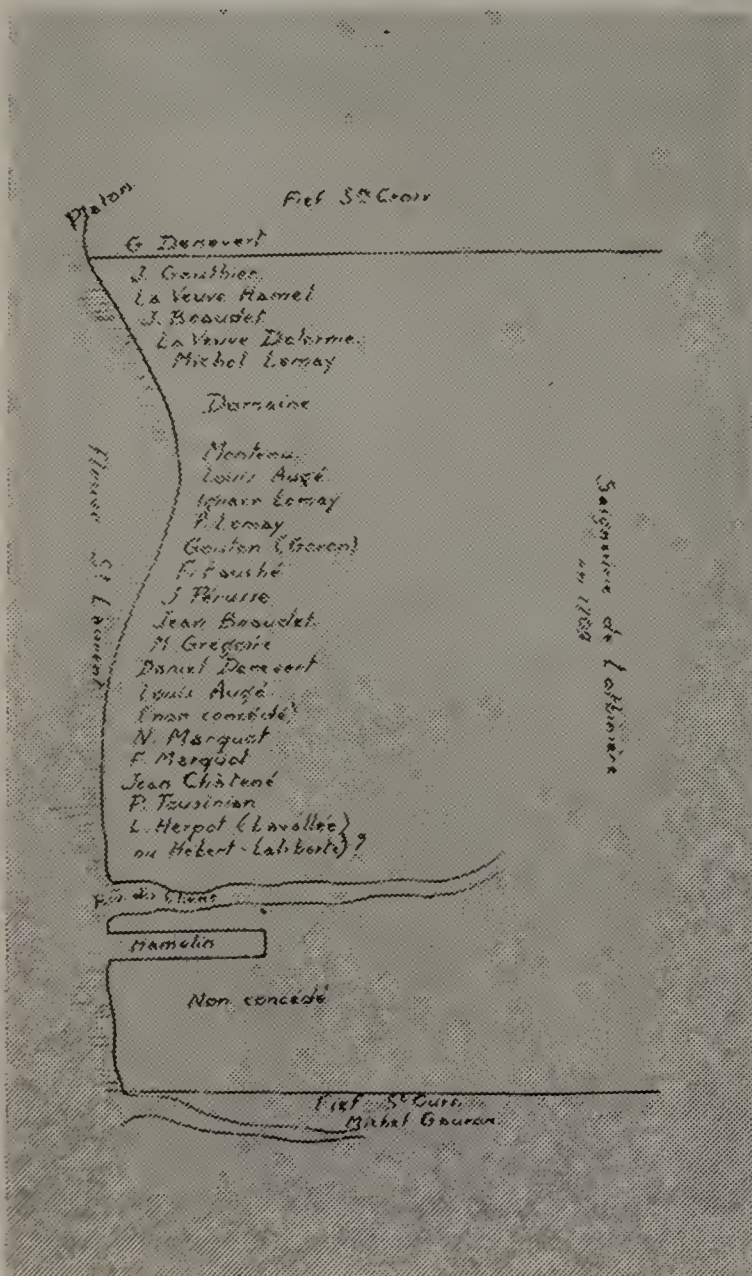 Platon
Fief Ste Croix
G. Denevert
J. Gauthier
La Veuve Hamel
J. Beaudet
La Veuve Delorme
Michel Lemay
Domaine
Monteau
Louis Augé
Ignace Lemay
P. Lemay
(Goron)
F. Fauché
J. Pérusse
Jean Beaudet
M Gregoire
Daniel Denevert
Louis Augé
(non concédé)
N. Marquot
F. Marquot
Jean Châtené
P. Tousinian
L. Herpot (Lavallée)
ou Hébert-Laliberté) ?
Fleuve St Laurent
Seigneurie de Lotbinière
en
Riv. du Chêne
Hamelin
Non concédé
Fief St Ours
Michel Gouron